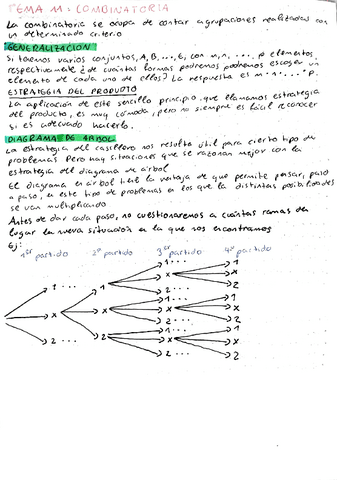 TEMA 11: COMBINATORIA
La combinatoria se ocupa de contar agrupaciones realizadas con
un determinado criterio
GENERALIZACION
Si tenemos varios conjuntos, A, B, ..., E, con m, n, ..., p elementos,
respectivamente ¿de cuántas formas podremos podremos escoger un
elemento de cada uno de ellos? La respuesta es m·n·...·p.
ESTRATEGIA DEL PRODUCTO
La aplicación de este sencillo principio que llamamos estrategia
del producto, es muy cómoda, pero no siempre es fácil reconocer
si es adecuado hacerlo.
DIAGRAMA DE ARBOL
La estrategia del casillero nos resulta útil para cierto tipo de
problemas. Pero hay situaciones que se razonan mejor con la
estrategia del diagrama de árbol
El diagrama en árbol tiene la ventaja de que permite pensar, paso
a paso, en este tipo de problemas en los que la distintas posibilidades
se van multiplicando
Antes de dar cada paso, no cuestionaremos a cuántas ramas da
lugar la nueva situación en la que nos encontramos
Ej:
1er partido 2º partido 3er partido 4º partido
1 ... 1 ... 1 ... 1
x
2
x x x 1
x
2
2 ... 1
x
2
2 ... 2 1 ...
x 1
x
2
2 ...